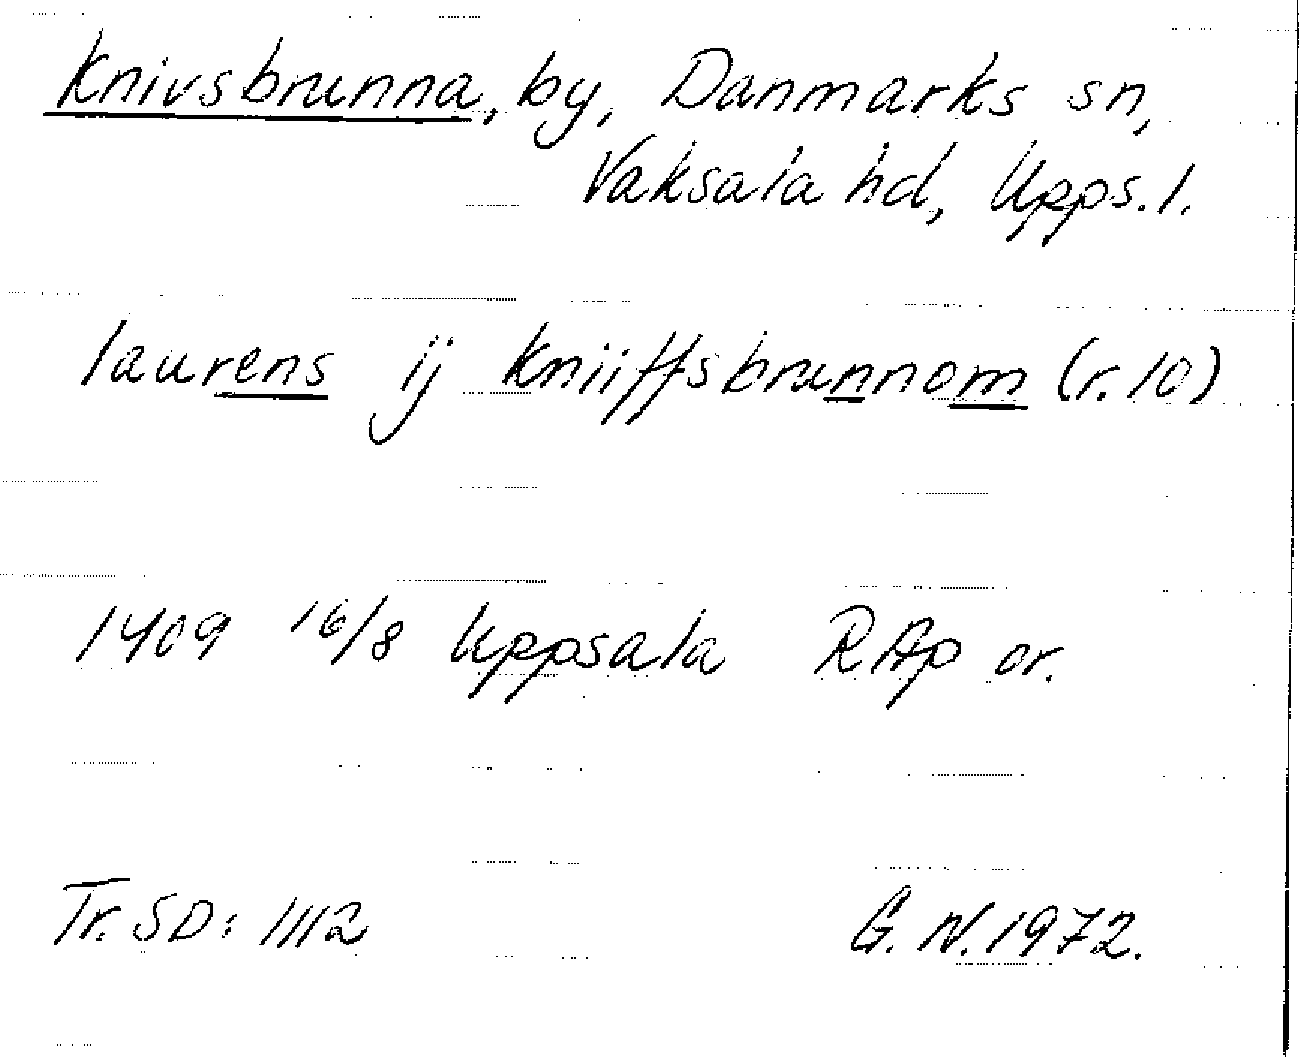 Knivsbrunna, by, Danmarks sn,
Vaksala hd, Upps. l.
laurens ij kniiffsbrunnom (r. 10)
1409 16/8 Uppsala RAp or.
Tr. SD: 1112 G. N. 1972.